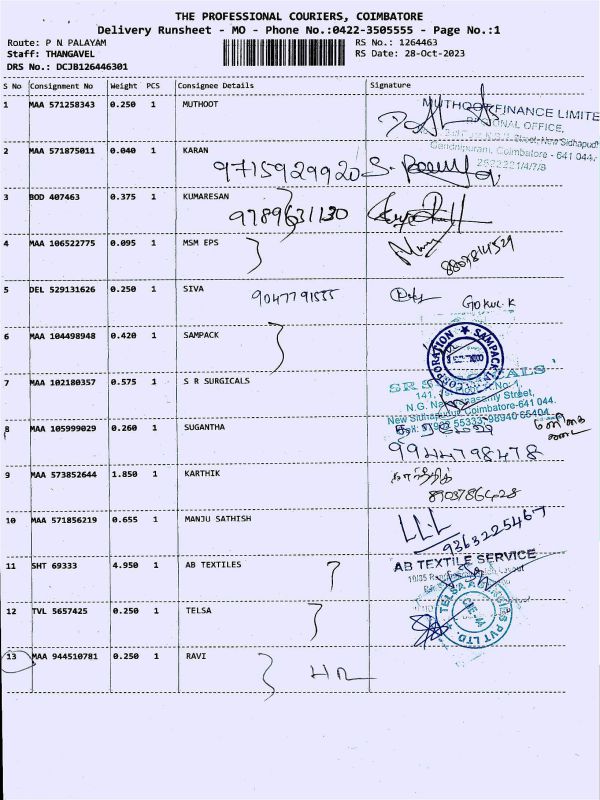 THE PROFESSIONAL COURIERS, COIMBATORE
Delivery Runsheet - MO - Phone No.:0422-3505555 - Page No.:1
Route: P N PALAYAM
RS No.: 1264463
Staff: THANGAVEL
RS Date: 28-Oct-2023
DRS No.: DCJB126446301
S No Consignment No Weight PCS Consignee Details Signature
1 MAA 571258343 0.250 1 MUTHOOT
MUTHOOT FINANCE LIMITE
REGIONAL OFFICE,
Street, New Sidhapud
Gandhipuram, Coimbatore - 641 044.
2 MAA 571875011 0.040 1 KARAN
9715929920
3 BOD 407463 0.375 1 KUMARESAN
9789631130
4 MAA 106522775 0.095 1 MSM EPS
5 DEL 529131626 0.250 1 SIVA
9047791555
GOKUL.K
6 MAA 104498948 0.420 1 SAMPACK
SAMPACK
CORPORATION
7 MAA 102180357 0.575 1 S R SURGICALS
Street,
Coimbatore-641 044.
8 MAA 105999029 0.260 1 SUGANTHA
9944798478
9 MAA 573852644 1.850 1 KARTHIK
கார்த்திக்
10 MAA 571856219 0.655 1 MANJU SATHISH
9363225467
11 SHT 69333 4.950 1 AB TEXTILES
AB TEXTILE SERVICE
12 TVL 5657425 0.250 1 TELSA
PVT LTD.
13 MAA 944510781 0.250 1 RAVI